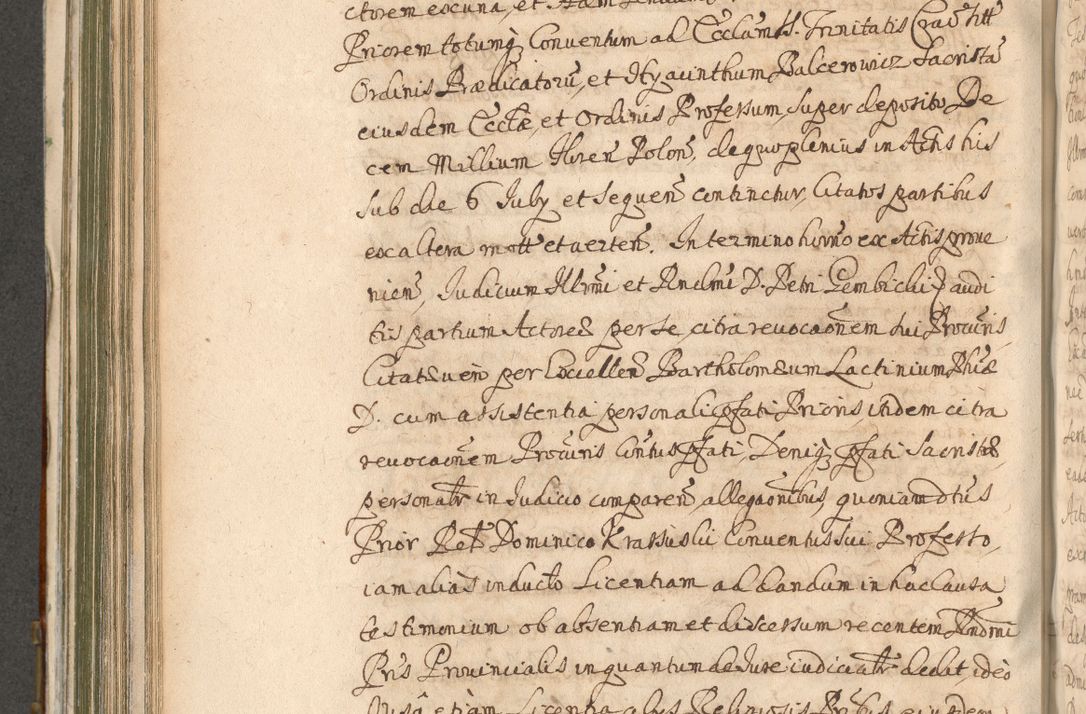 Priorem totumq Conventum ad Ecclam SS. Trinitatis Crac titt
Ordinis Prædicatorũ, et Hyacinthum Balcerowicz Sacrista
eiusdem Ecclæ, et Ordinis Professum, super deposito De
cem Millium floren Polon, de quo plenius in Actis his
sub die 6 July et sequen continetur, Citatos partibus
ex altera
In termino hodierno ex Actis prove
nien, Judicium Illrmi et Rndmi D. Petri Gembicki audi
tis partium Actorea per se, citra revocaonem sui Procuris
Citata vero per Excellen Bartholomæum Lactinium Phiæ
D. cum assistentia personali pfati Prioris itidem citra
revocaonem Procuris Contus pfati, Deniq pfati Sacristæ
personalr in Judicio comparen, allegaonibus, quoniam dtus
Prior Rel Dominico Krassuski Conventus sui Professo,
iam alias inducto Licentiam ad dandum in hac causa
testimonium ob absentiam et discessum recentem Rndmi
Pris Provincialis in quantum de Jure iudicialr dedit, ideo
etiam Licentia